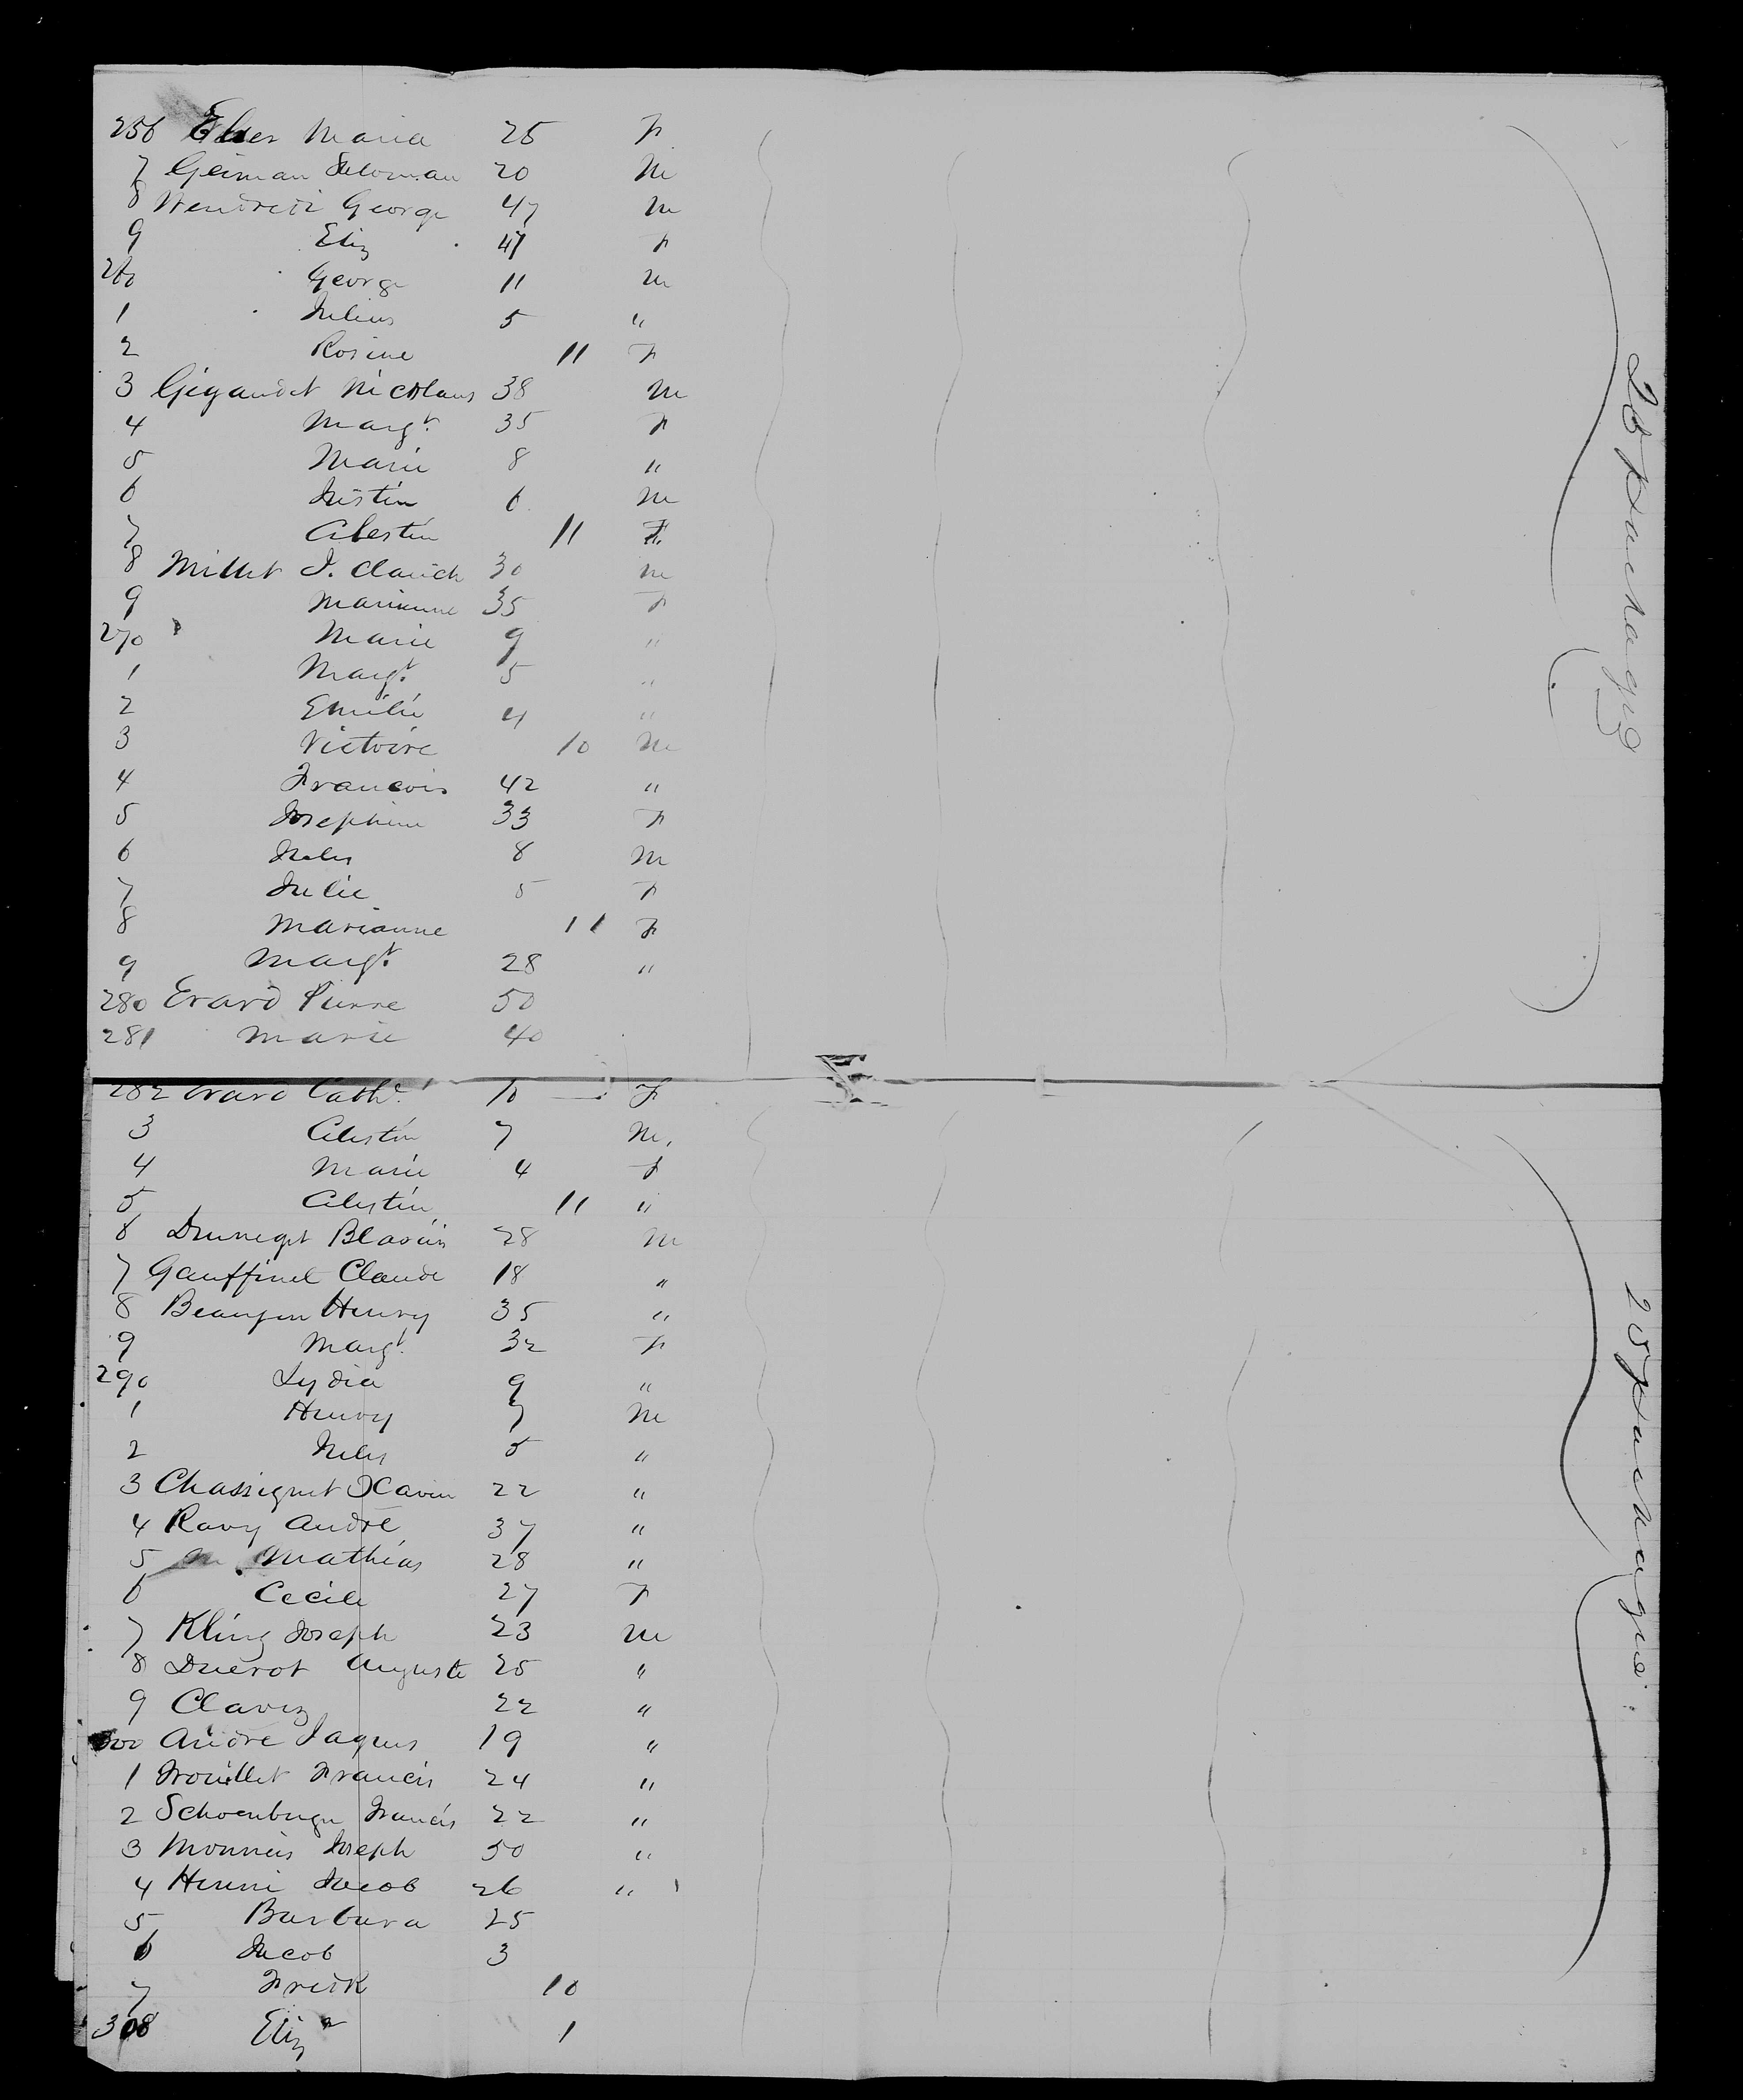 256 Elser Maria 25 F
7 Geiman Salomian 20 M
8 Wendreti George 47 m
9 Eliz 47 F
260 George 11 m
1 Julius 5 "
2 Rosine 11 F
3 Gigandet Nicolaus 38 m
4 Margt. 35 F
5 Marie 8 "
6 Justin 6 m
7 Celestin 11 F
8 Millet J. Claude 30 m
9 Marianne 35 F
270 Marie 9 "
1 Margt. 5 "
2 Emilie 4 "
3 Victoire 10 m
4 Francois 42 "
5 Josephine 33 F
6 Jules 8 m
7 Julie 5 F
8 Marianne 11 F
9 Margt. 28 "
280 Erard Pierre 50
281 Marie 40
282 Erard Cathr. 10 F
3 Celestin 7 M.
4 Marie 4 F
5 Celestin 11 "
6 28 m
7 Gauffinet Claude 18 "
8 Henry 35 "
9 Margt. 32 F
290 Lydia 9 "
1 Henry 7 m
2 Jules 5 "
3 Chassignet Xavier 22 "
4 Ravy Andre 37 "
5 Mathias 28 "
6 Cecile 27 F
7 Kling Joseph 23 m
8 Ducrot Auguste 25 "
9 Clavez 22 "
300 Andre Jaques 19 "
1 Trouillet Francis 24 "
2 Francis 22 "
3 Monnier Joseph 50 "
4 Henni Jacob 26 "
5 Barbara 25
6 Jacob 3
7 Fredk 10
308 Eliz 1